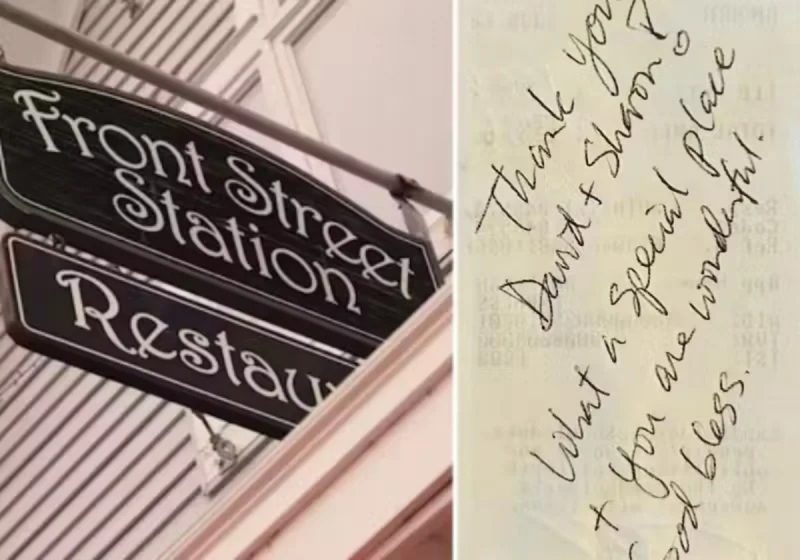 Front Street
Station
Restau
Thank you
David + Sharon!
What a special place
+ you are wonderful.
God bless.